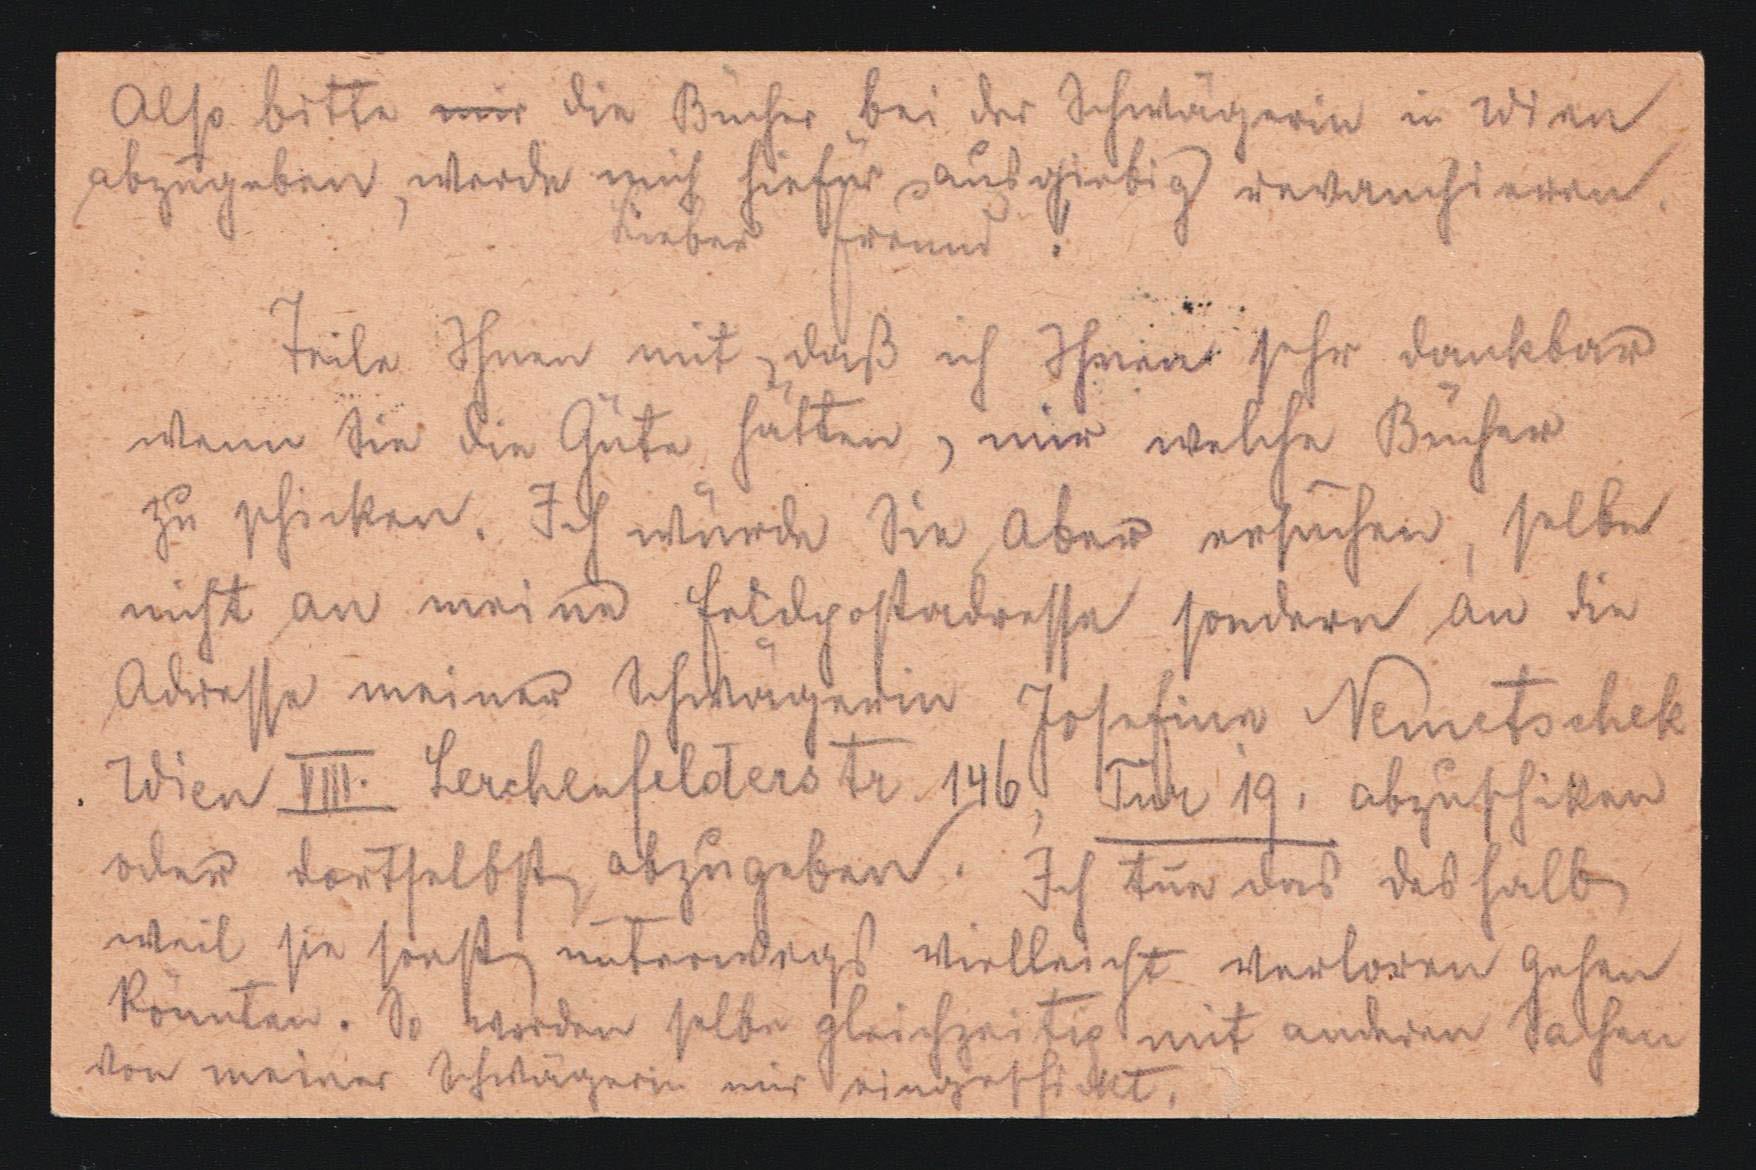 Also bitte mir die Bücher bei der Schwägerin in Wien
abzugeben, werde mich hiefür ausgiebig revanchieren.
Lieber Freund!
Teile Ihnen mit, daß ich Ihnen sehr dankbar
wenn Sie die Güte hätten, mir welche Bücher
zu schicken. Ich würde Sie aber ersuchen, selbe
nicht an meine Feldpostadresse sondern an die
Adresse meiner Schwägerin Josefine Nemetschek
Wien VIII. Lerchenfelderstr 146, Tür 19. abzuschiken
oder dortselbst abzugeben. Ich tue das deshalb
weil sie sonst unterwegs vielleicht verloren gehen
könnten. So werden selbe gleichzeitig mit anderen Sachen
von meiner Schwägerin mir eingeschickt.